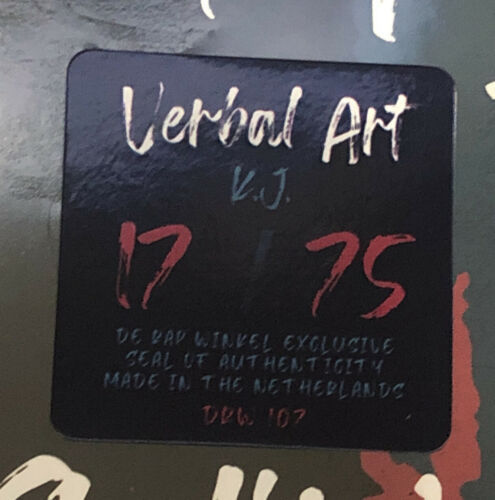 Verbal Art
K.J.
17 / 75
DE RAP WINKEL EXCLUSIVE
SEAL OF AUTHENTICITY
MADE IN THE NETHERLANDS
DRW 107